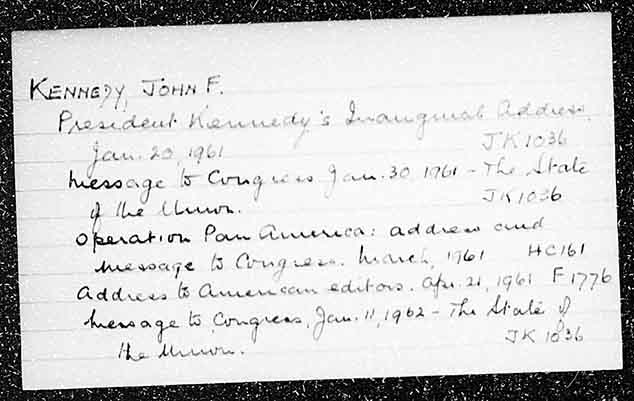 KENNEDY, JOHN F.
President Kennedy's Inaugural Address,
Jan. 20, 1961 JK1036
Message to Congress Jan. 30 1961 - The State
of the Union. JK1036
Operation Pan America: address and
message to Congress. March, 1961 HC161
Address to American editors. Apr. 21, 1961 F1776
Message to Congress, Jan. 11, 1962 - The State of
the Union. JK 1036